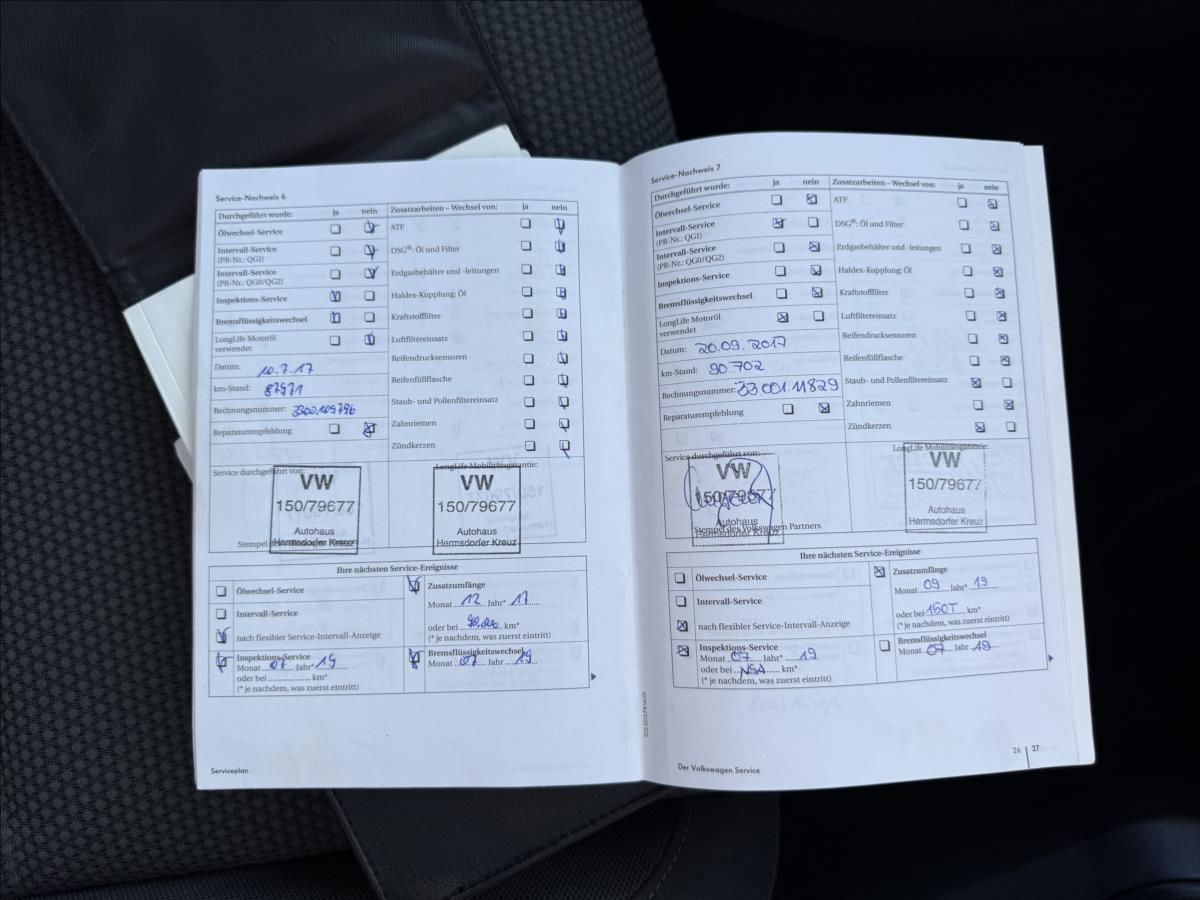 Service-Nachweis 6
Durchgeführt wurde: ja nein Zusatzarbeiten – Wechsel von: ja nein
Ölwechsel-Service
ATF
Intervall-Service
(PR-Nr.: QG1)
DSG®: Öl und Filter
Intervall-Service
(PR-Nr.: QG0/QG2)
Erdgasbehälter und -leitungen
Inspektions-Service
Haldex-Kupplung: Öl
Bremsflüssigkeitswechsel
Kraftstofffilter
LongLife Motoröl
verwendet
Luftfiltereinsatz
Datum: 10.7.17
Reifendrucksensoren
km-Stand: 87971
Reifenfüllflasche
Rechnungsnummer: 3300109796
Staub- und Pollenfiltereinsatz
Reparaturempfehlung
Zahnriemen
Zündkerzen
Service durchgeführt von:
LongLife Mobilitätsgarantie:
VW
150/79677
Autohaus
Hermsdorfer Kreuz
VW
150/79677
Autohaus
Hermsdorfer Kreuz
Ihre nächsten Service-Ereignisse
Ölwechsel-Service
Intervall-Service
nach flexibler Service-Intervall-Anzeige
Inspektions-Service
Monat 07 Jahr* 19
oder bei km*
(* je nachdem, was zuerst eintritt)
Zusatzumfänge
Monat 12 Jahr* 17
oder bei 90.000 km*
(* je nachdem, was zuerst eintritt)
Bremsflüssigkeitswechsel
Monat 07 Jahr 19
Serviceplan
Service-Nachweis 7
Durchgeführt wurde: ja nein Zusatzarbeiten – Wechsel von: ja nein
Ölwechsel-Service
ATF
Intervall-Service
(PR-Nr.: QG1)
DSG®: Öl und Filter
Intervall-Service
(PR-Nr.: QG0/QG2)
Erdgasbehälter und -leitungen
Inspektions-Service
Haldex-Kupplung: Öl
Bremsflüssigkeitswechsel
Kraftstofffilter
LongLife Motoröl
verwendet
Luftfiltereinsatz
Datum: 20.09.2017
Reifendrucksensoren
km-Stand: 90.702
Reifenfüllflasche
Rechnungsnummer: 33.001.11829
Staub- und Pollenfiltereinsatz
Reparaturempfehlung
Zahnriemen
Zündkerzen
Service durchgeführt von:
LongLife Mobilitätsgarantie:
VW
150/79677
Autohaus
Hermsdorfer Kreuz
Stempel des Volkswagen Partners
VW
150/79677
Autohaus
Hermsdorfer Kreuz
Ihre nächsten Service-Ereignisse
Ölwechsel-Service
Intervall-Service
nach flexibler Service-Intervall-Anzeige
Inspektions-Service
Monat 07 Jahr* 19
oder bei NSA km*
(* je nachdem, was zuerst eintritt)
Zusatzumfänge
Monat 09 Jahr* 19
oder bei 150T km*
(* je nachdem, was zuerst eintritt)
Bremsflüssigkeitswechsel
Monat 07 Jahr 19
Der Volkswagen Service
26 27